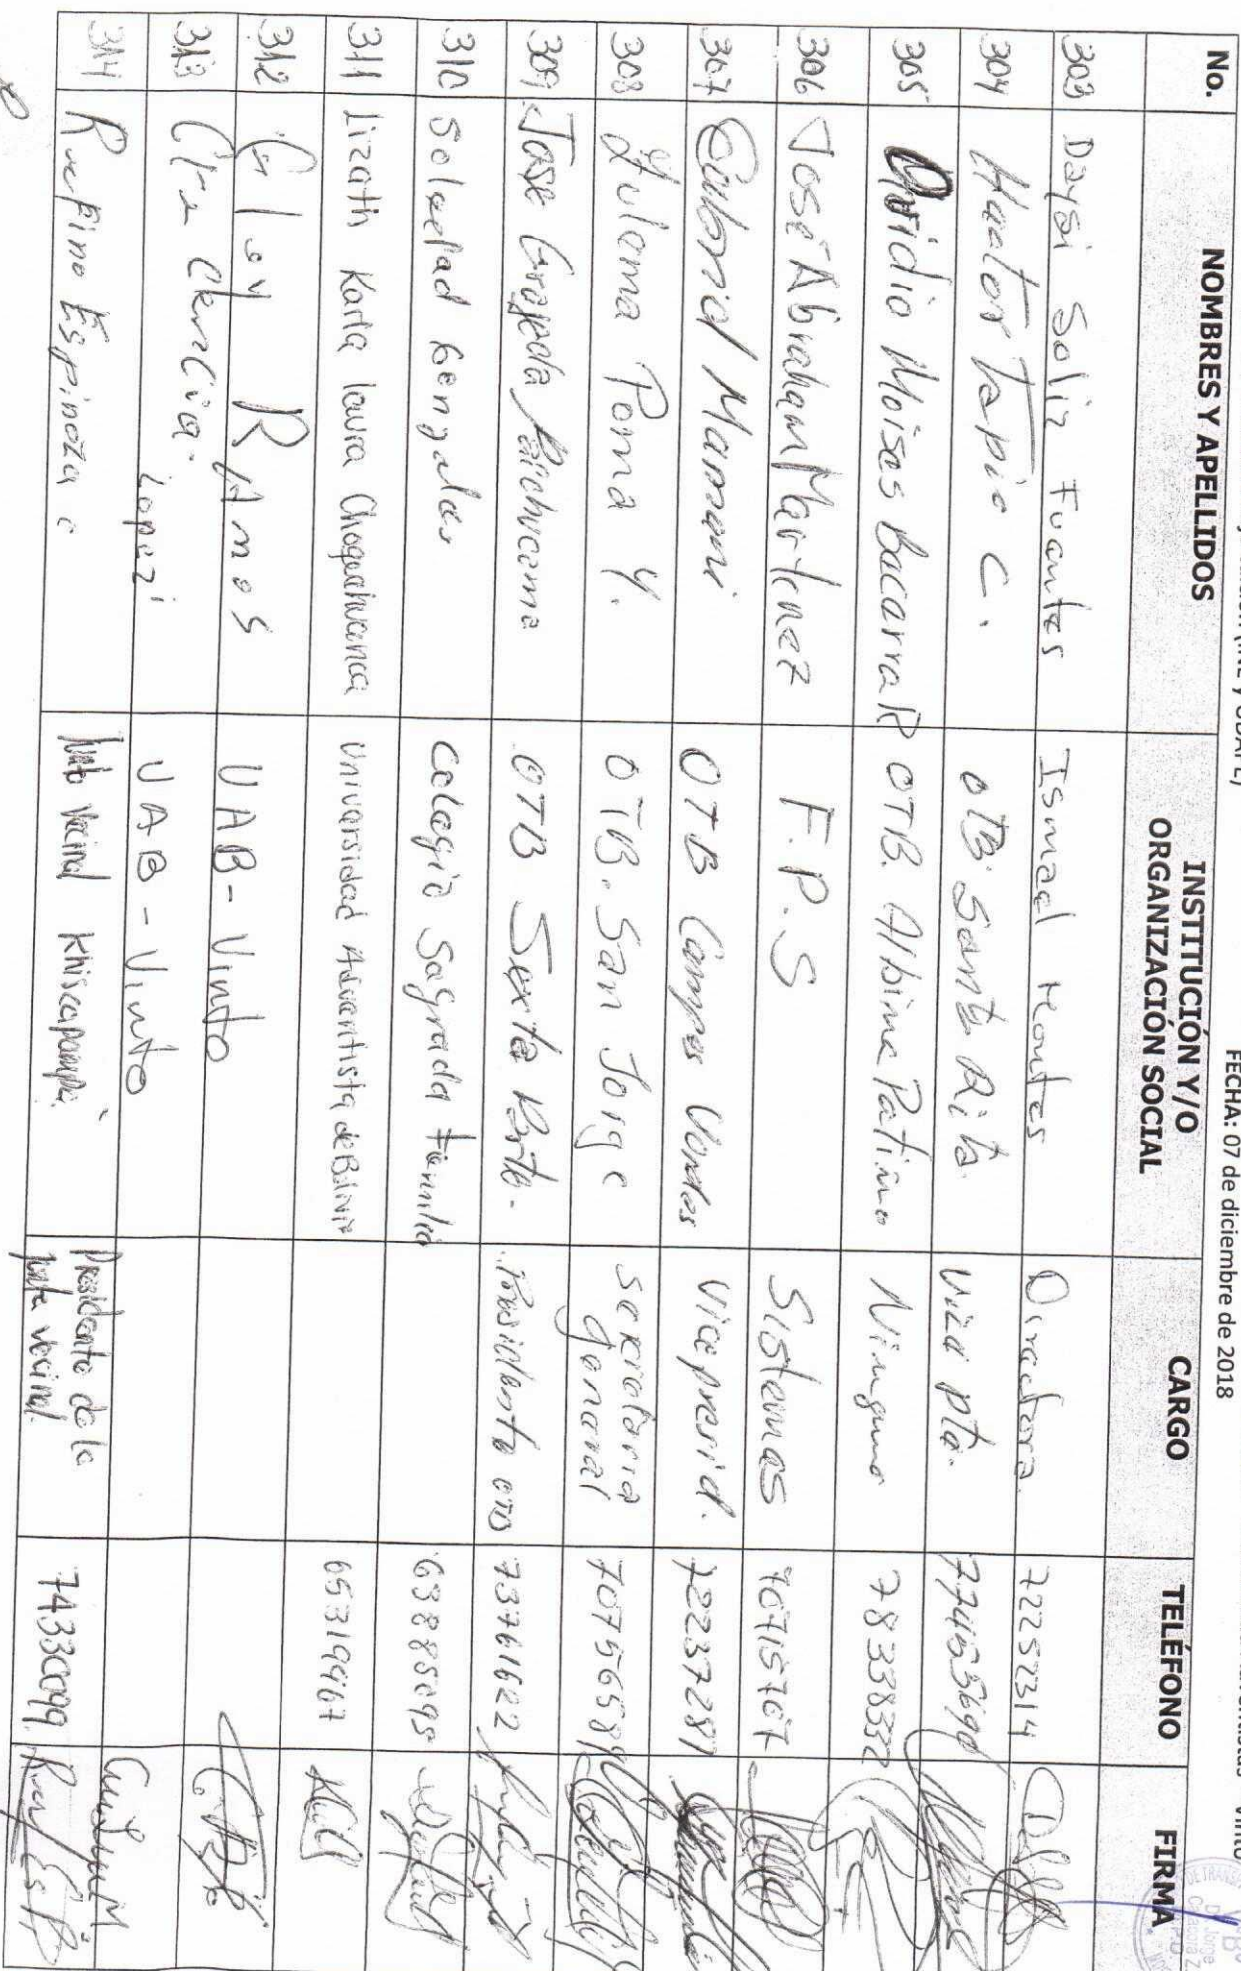 FECHA: 07 de diciembre de 2018
No. NOMBRES Y APELLIDOS INSTITUCIÓN Y/O ORGANIZACIÓN SOCIAL CARGO TELÉFONO FIRMA
303 Daysi Soliz Fuentes Ismael Montes Directora. 72252314
304 Hector Tapia C. OTB. Santa Rita. Vice pta.
305 Ovidio Moises Becerra R OTB. Albina Patino Ninguno 78338332
306 José Abraham Martinez F.P.S Sistemas 70715707
307 Gabriel Mamani OTB Campos Verdes Vicepresid. 72237287
308 Zulema Poma Y. OTB. San Jorge Secretaria general 70756589
309 Jose Grageda OTB Santa OTB 73761622
310 Soledad Gonzales Colegio Sagrada Familia 63885095
311 Lizeth Karla Laura Choquehuanca Universidad Adventista de Bolivia 65319967
312 Ramos UAB - Vinto
313 Lopez UAB - Vinto
314 Rufino Espinoza C Junta Vecinal Khiscapampa. Presidente de la junta vecinal. 74330099